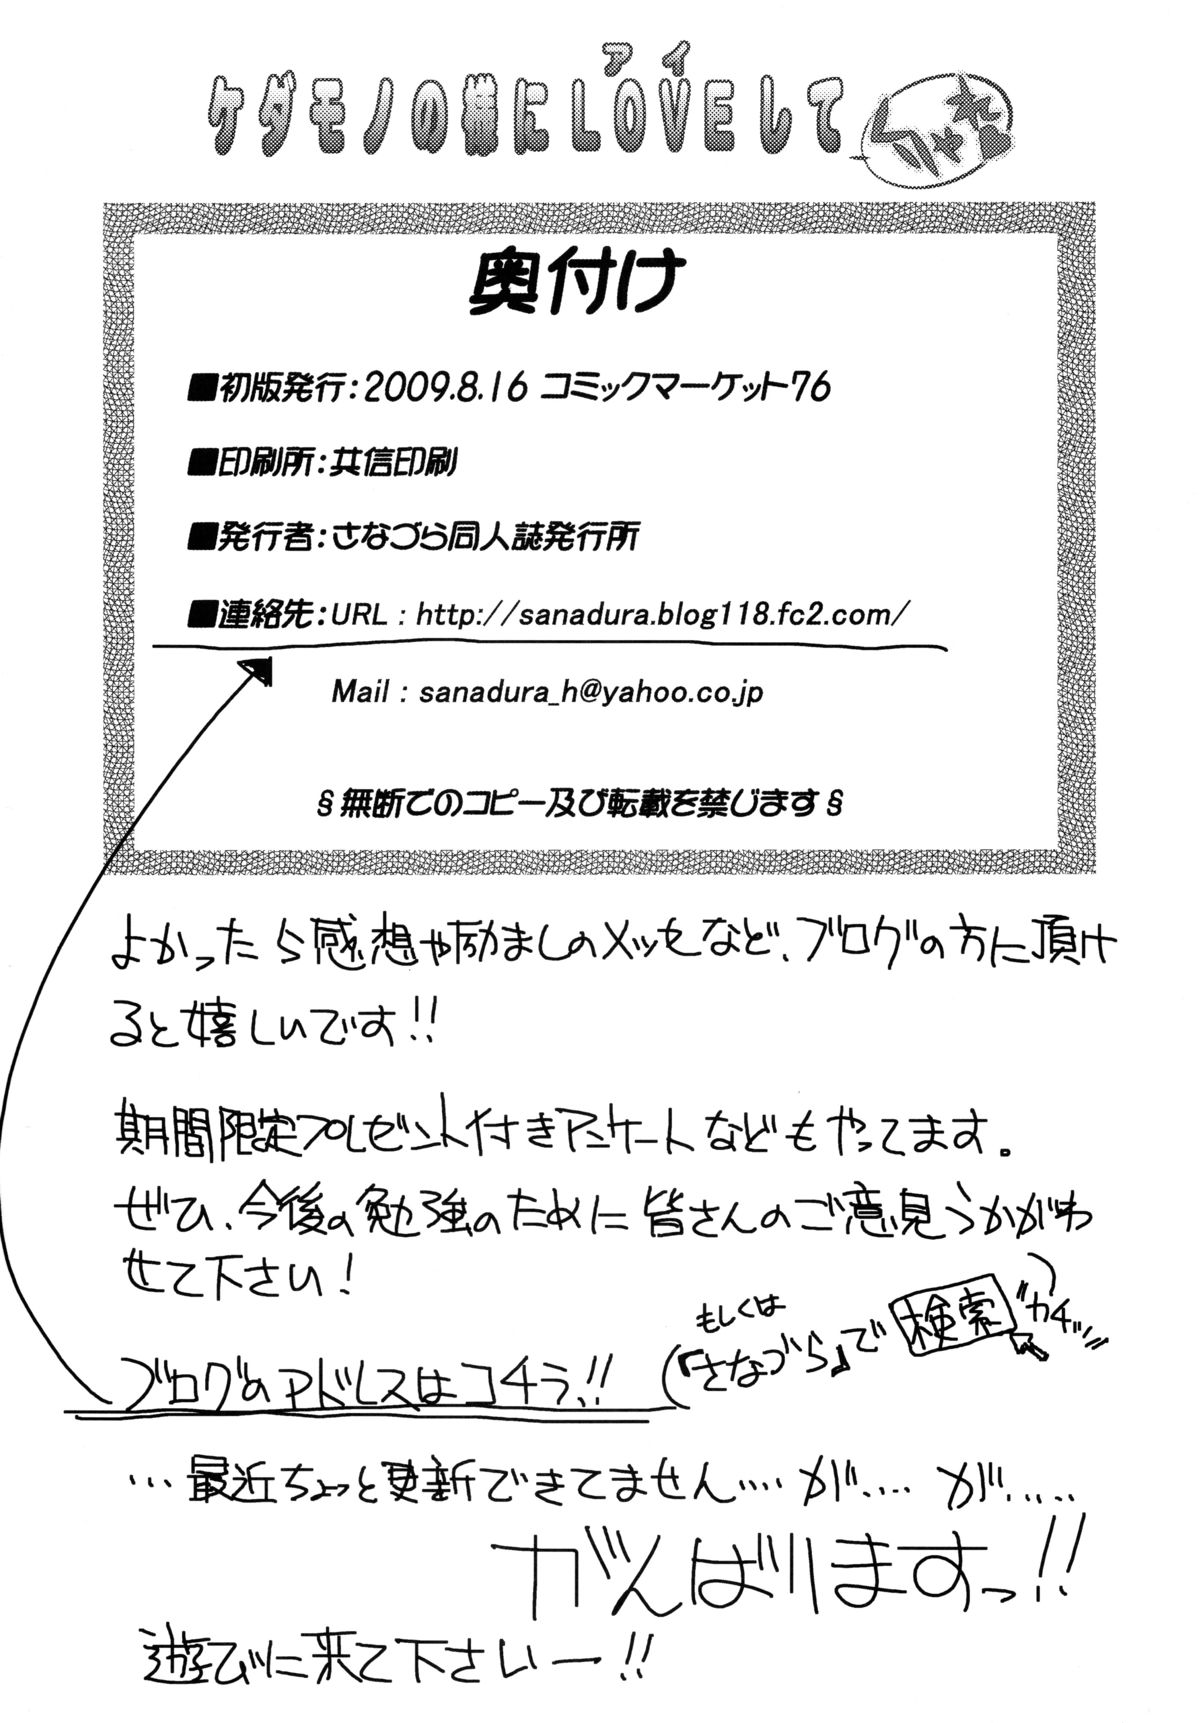 アイ
ケダモノの様にLOVEして
奥付け
■初版発行：2009.8.16 コミックマーケット76
■印刷所：共信印刷
■発行者：さなづら同人誌発行所
■連絡先：URL : http://sanadura.blog118.fc2.com/
Mail : sanadura_h@yahoo.co.jp
§無断でのコピー及び転載を禁じます§
よかったら感想や励ましのメッセなど、ブログの方に頂け
ると嬉しいです!!
期間限定プレゼント付きアンケートなどもやってます。
ぜひ、今後の勉強のために皆さんのご意見うかがわ
せて下さい!
ブログのアドレスはコチラ!!
(もしくは
『さなづら』で 検索 カチッ)
…最近ちょっと更新できてません….が…. が…..
がんばりますっ!!
遊びに来て下さいー!!